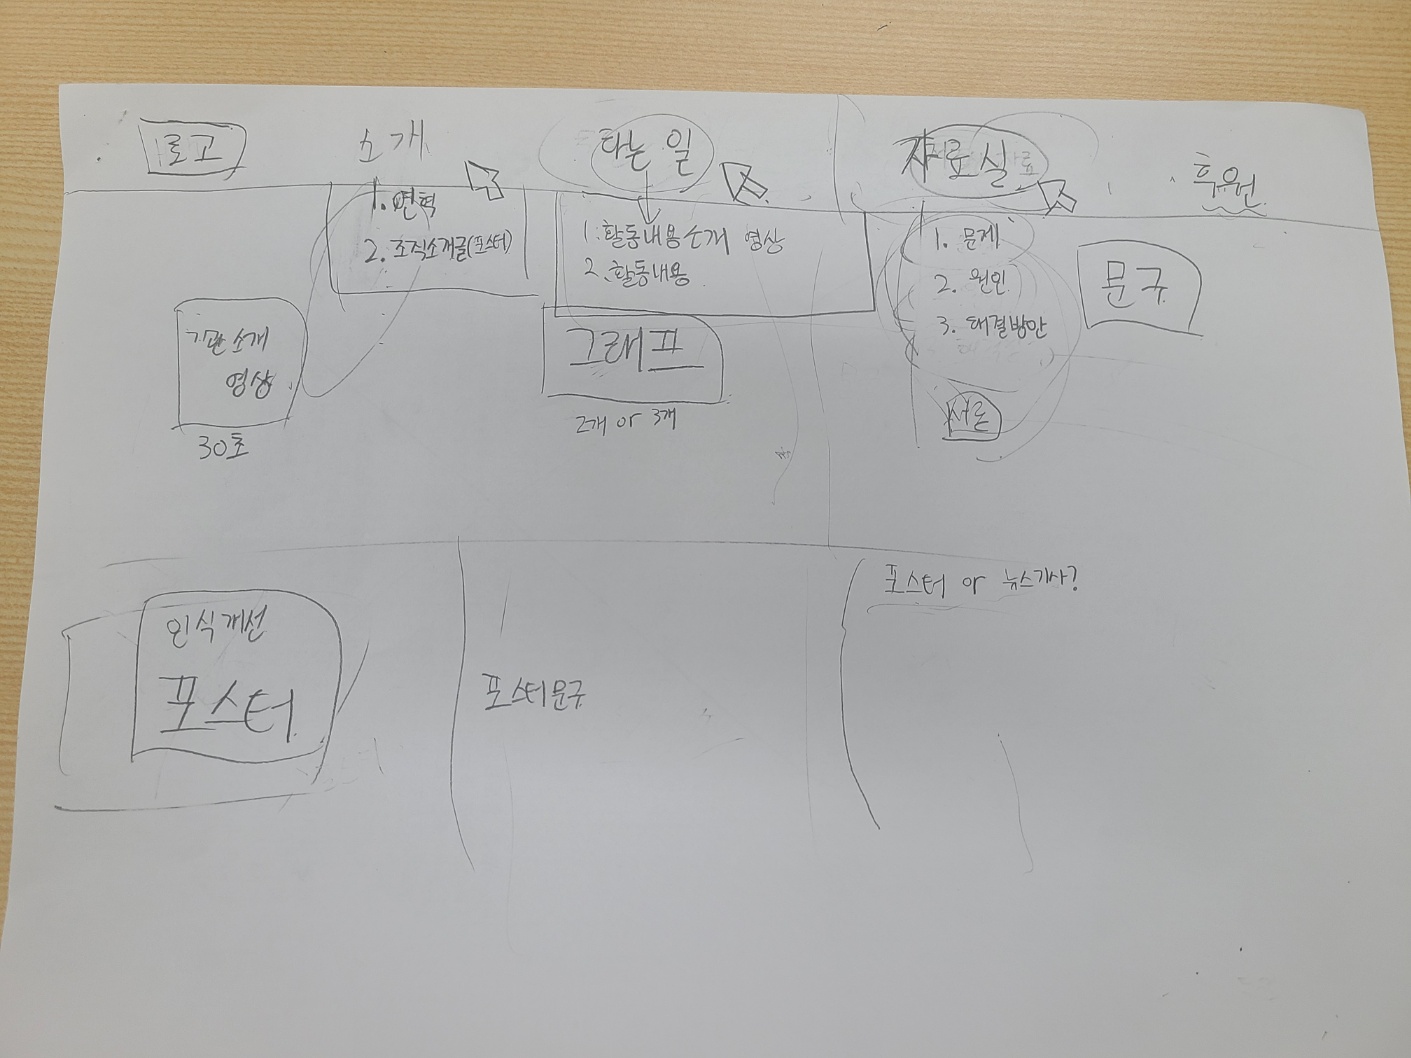 로고
소개
하는 일
자료실
후원
1. 연혁
2. 조직소개글(포스터)
1. 활동내용소개 영상
2. 활동내용
1. 문제
2. 원인
3. 해결방안
서론
문구
기관소개
영상
30초
그래프
2개 or 3개
인식개선
포스터
포스터문구
포스터 or 뉴스기사?